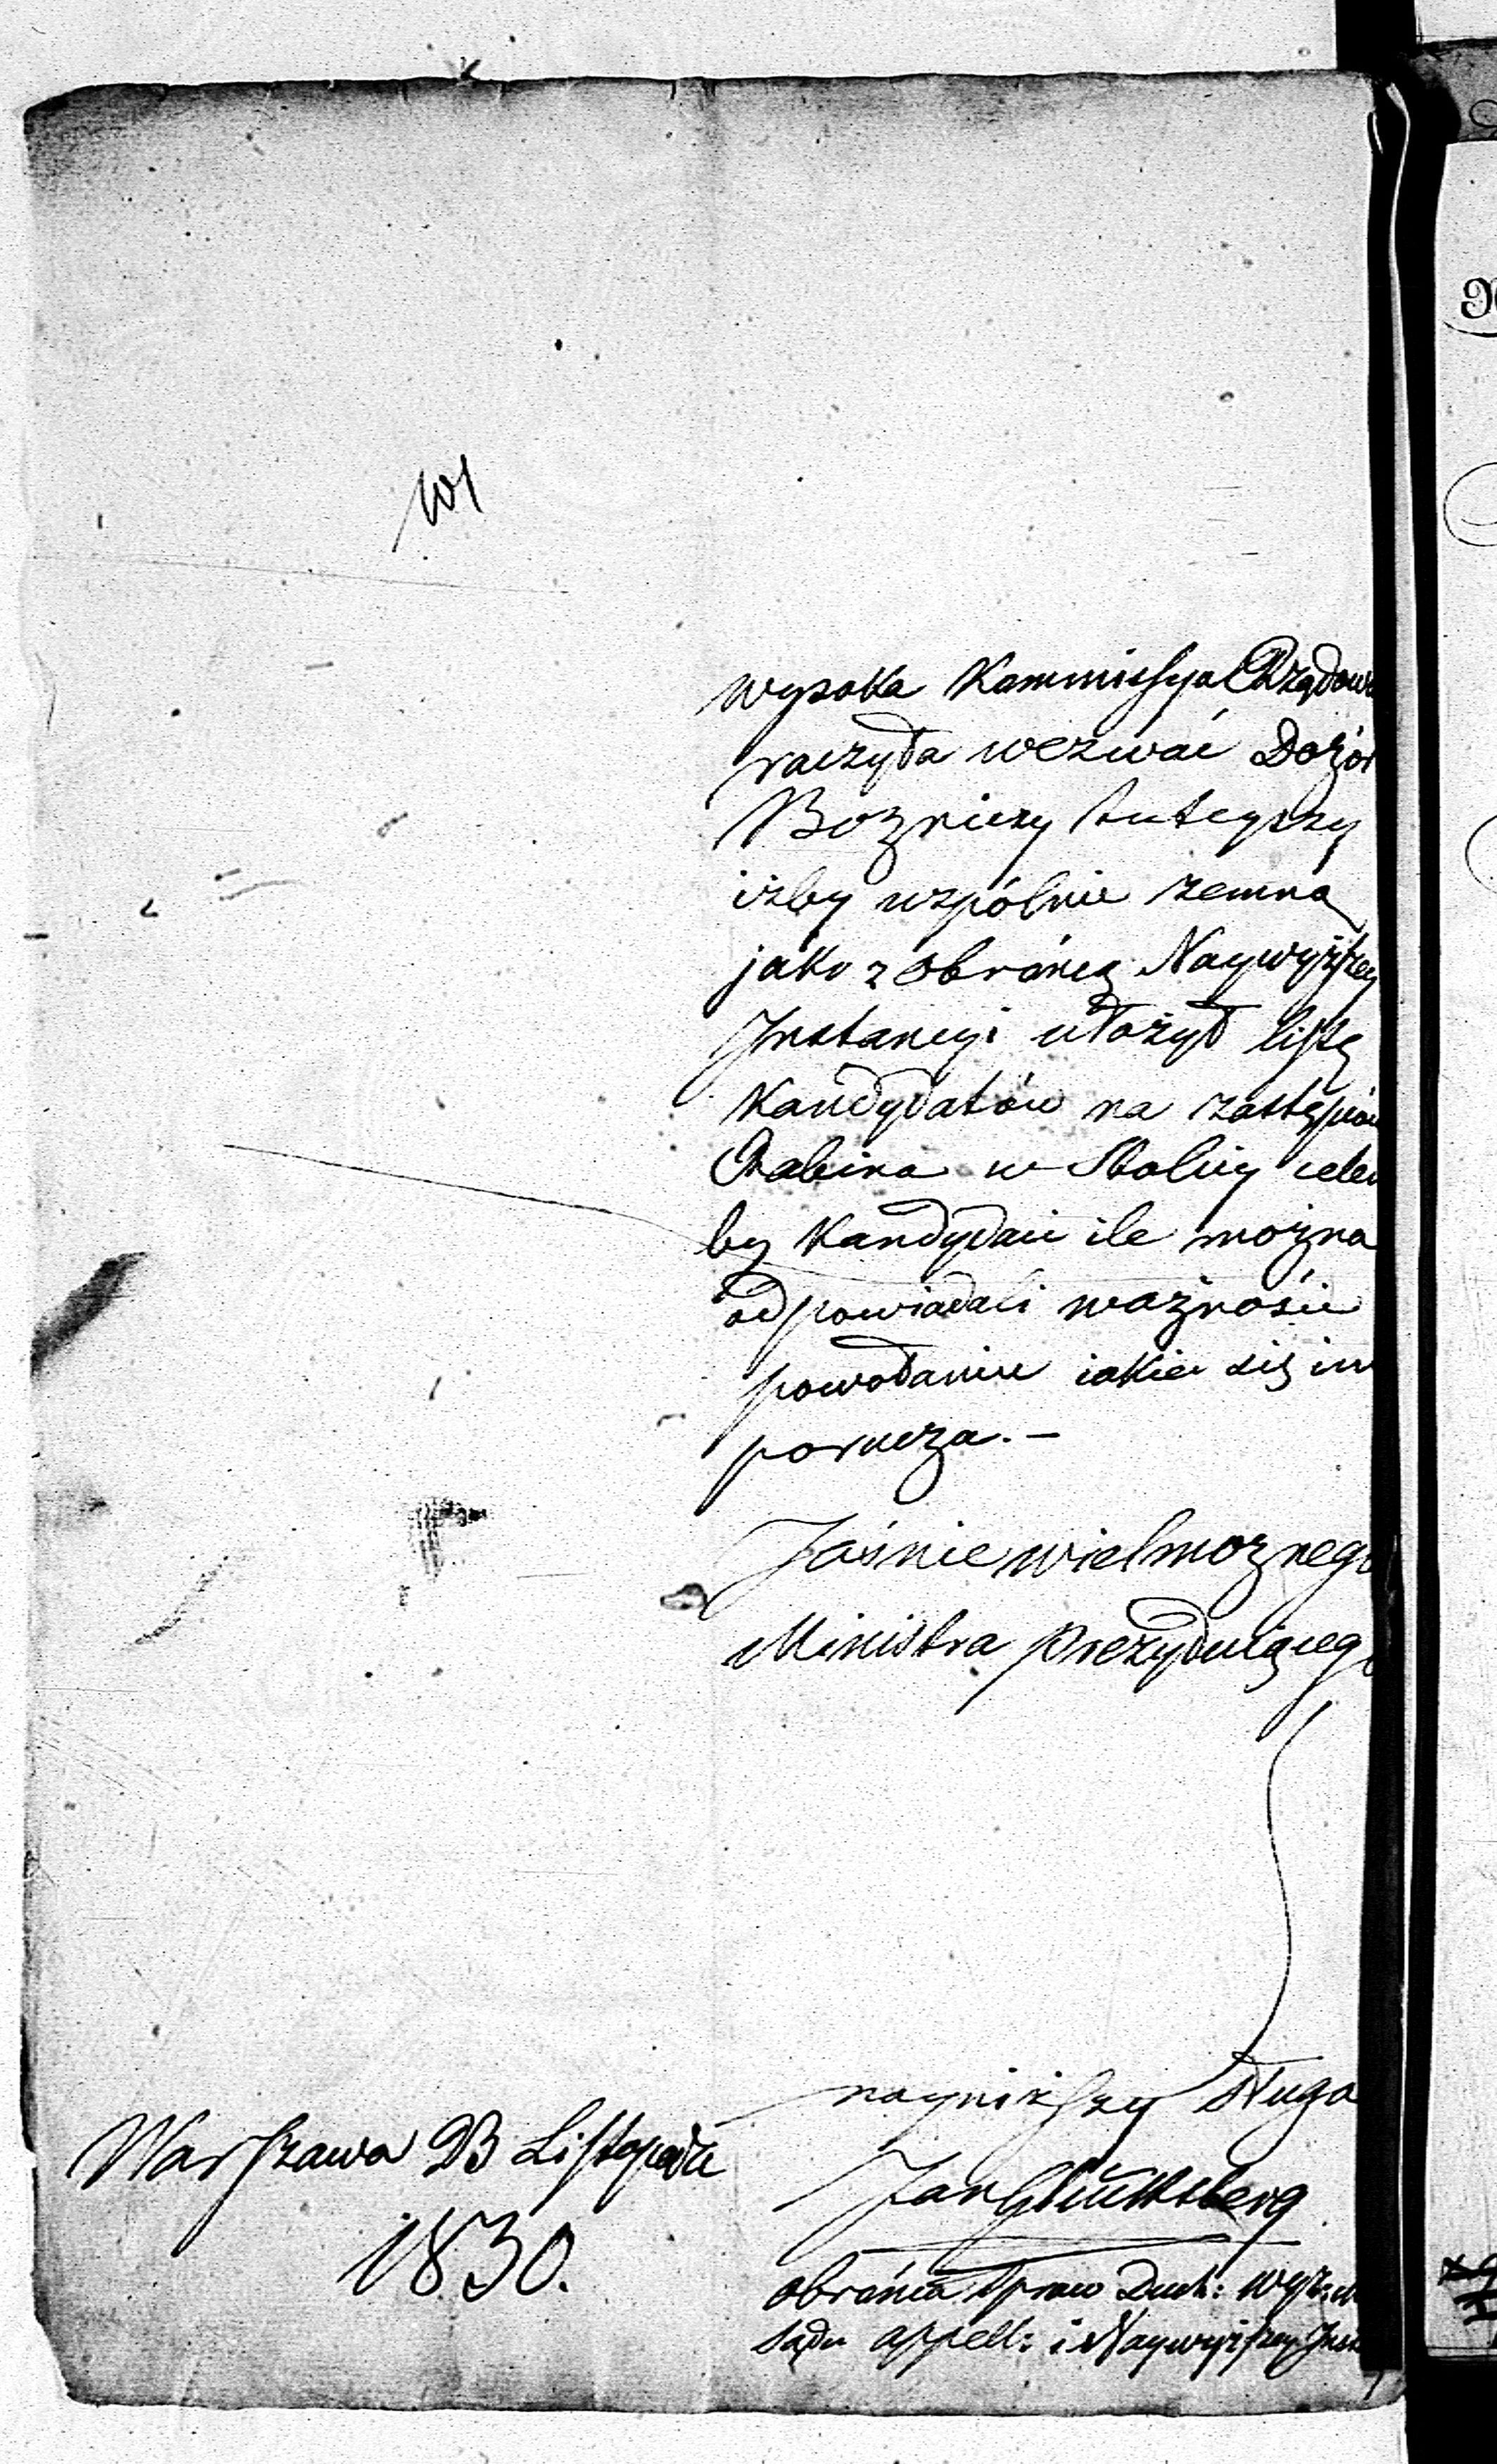 wysoka Kommissya Rządowa
raczyła wezwać Dozór
Bozniczy tuteyszy
iżby wspólnie zemną
jako z Obrońcą Naywyższey
Instancyi ułożył listę
Kandydatów na zastępców
Rabina w Stolicy celem
by Kandydaci ile można
odpowiadali ważności
powołaniu iakie się im
porucza. –
Jaśnie wielmożnego
Ministra Prezyduiącego
nayniższy Sługa
Warszawa 23 Listopada
1830.
Jan Glücksberg
obrońca Spraw Duch:
Sądu appell: i Naywyższey Inst